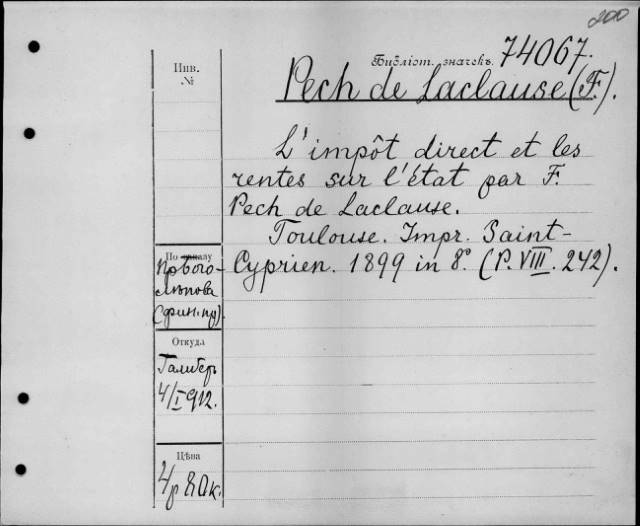 200
Библіот. значекъ. 74067.
Pech de Laclause (F.).
Инв.
№
L'impôt direct et les
rentes sur l'état par F.
Pech de Laclause.
Toulouse. Impr. Saint-
Cyprien. 1899 in 8°. (P. VIII. 242).
По каналу
пр. Бого-
лѣпова
(фин. пр.).
Откуда
4/I 912.
Цѣна
4 р 80 к.